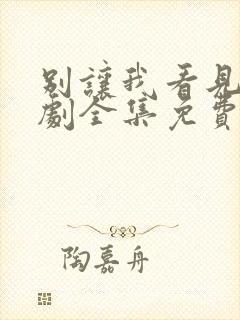 别讓我看見
劇全集免費
陶嘉舟